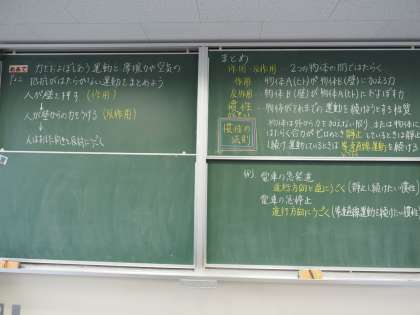 めあて 力をおよぼしあう運動と摩擦力や空気の
抵抗がはたらかない運動をまとめよう
人が壁を押す (作用)
↓
人が壁からの力をうける (反作用)
↓
人はおした向きと反対にうごく
まとめ
作用・反作用 … 2つの物体の間ではたらく
作用 物体A(ヒト)が物体B(壁)に加える力
反作用 物体B(壁)が物体A(ヒト)におよぼす力
慣性 物体がそれまでの運動を続けようとする性質
慣性の法則
物体は外から力を加えない限り、または物体に
はたらく合力がゼロのとき静止しているときは静止
し続け、運動しているときは等速直線運動を続ける
例) 電車の急発進
進行方向と逆にうごく (静止し続けたい慣性)
電車の急停止
進行方向にうごく (等速直線運動を続けたい慣性)